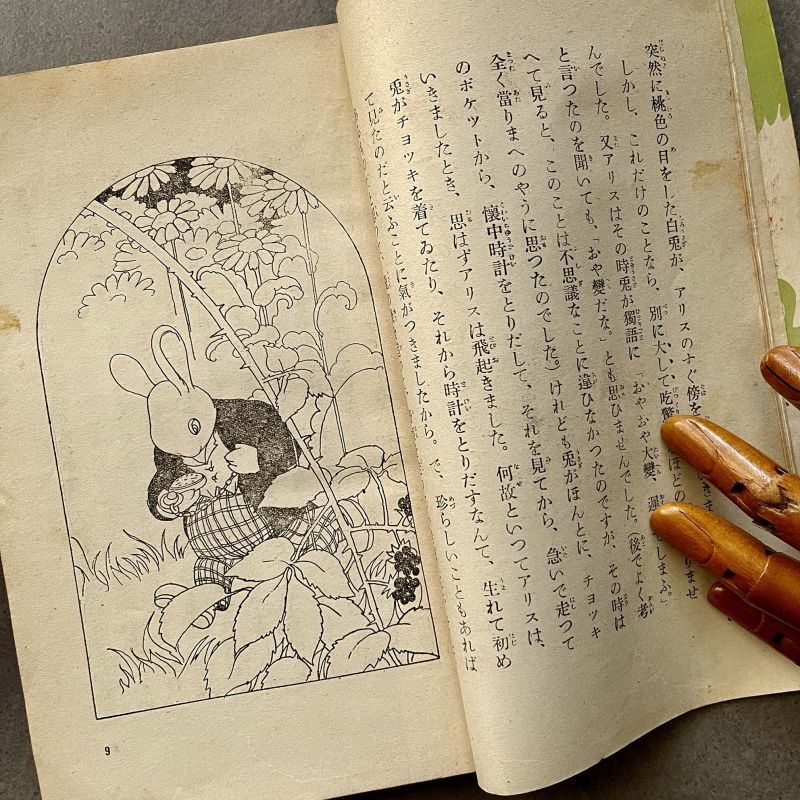 突然に桃色の目をした白兎が、アリスのすぐ傍を
しかし、これだけのことなら、別に大して吃驚ほどの りませ
んでした。又アリスはその時兎が獨語に「おやおや大變、遲 しまふ。」
と言つたのを聞いても、「おや變だな。」とも思ひませんでした。(後でよく考
へて見ると、このことは不思議なことに違ひなかつたのですが、その時は
全く當りまへのやうに思つたのでした。)けれども兎がほんとに、チヨッキ
のポケットから、懷中時計をとりだして、それを見てから、急いで走つて
いきましたとき、思はずアリスは飛起きました。何故といつてアリスは、
兎がチヨッキを着てゐたり、それから時計をとりだすなんて、生れて初め
て見たのだと云ふことに氣がつきましたから。で、珍らしいこともあれば
9